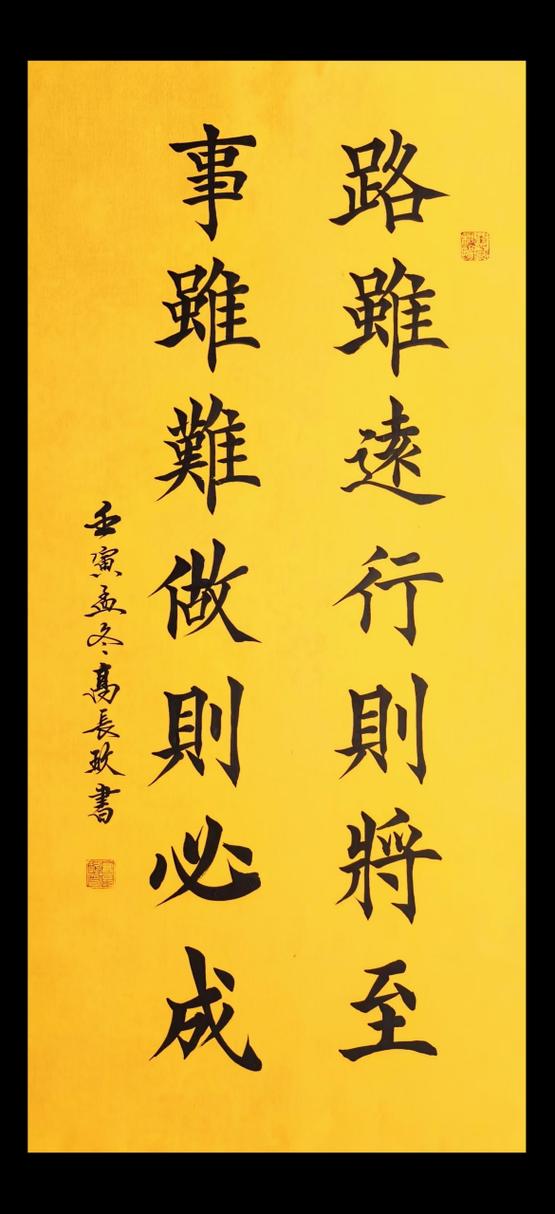 路雖遠行則將至
事雖難做則必成
壬寅孟冬高長耿書